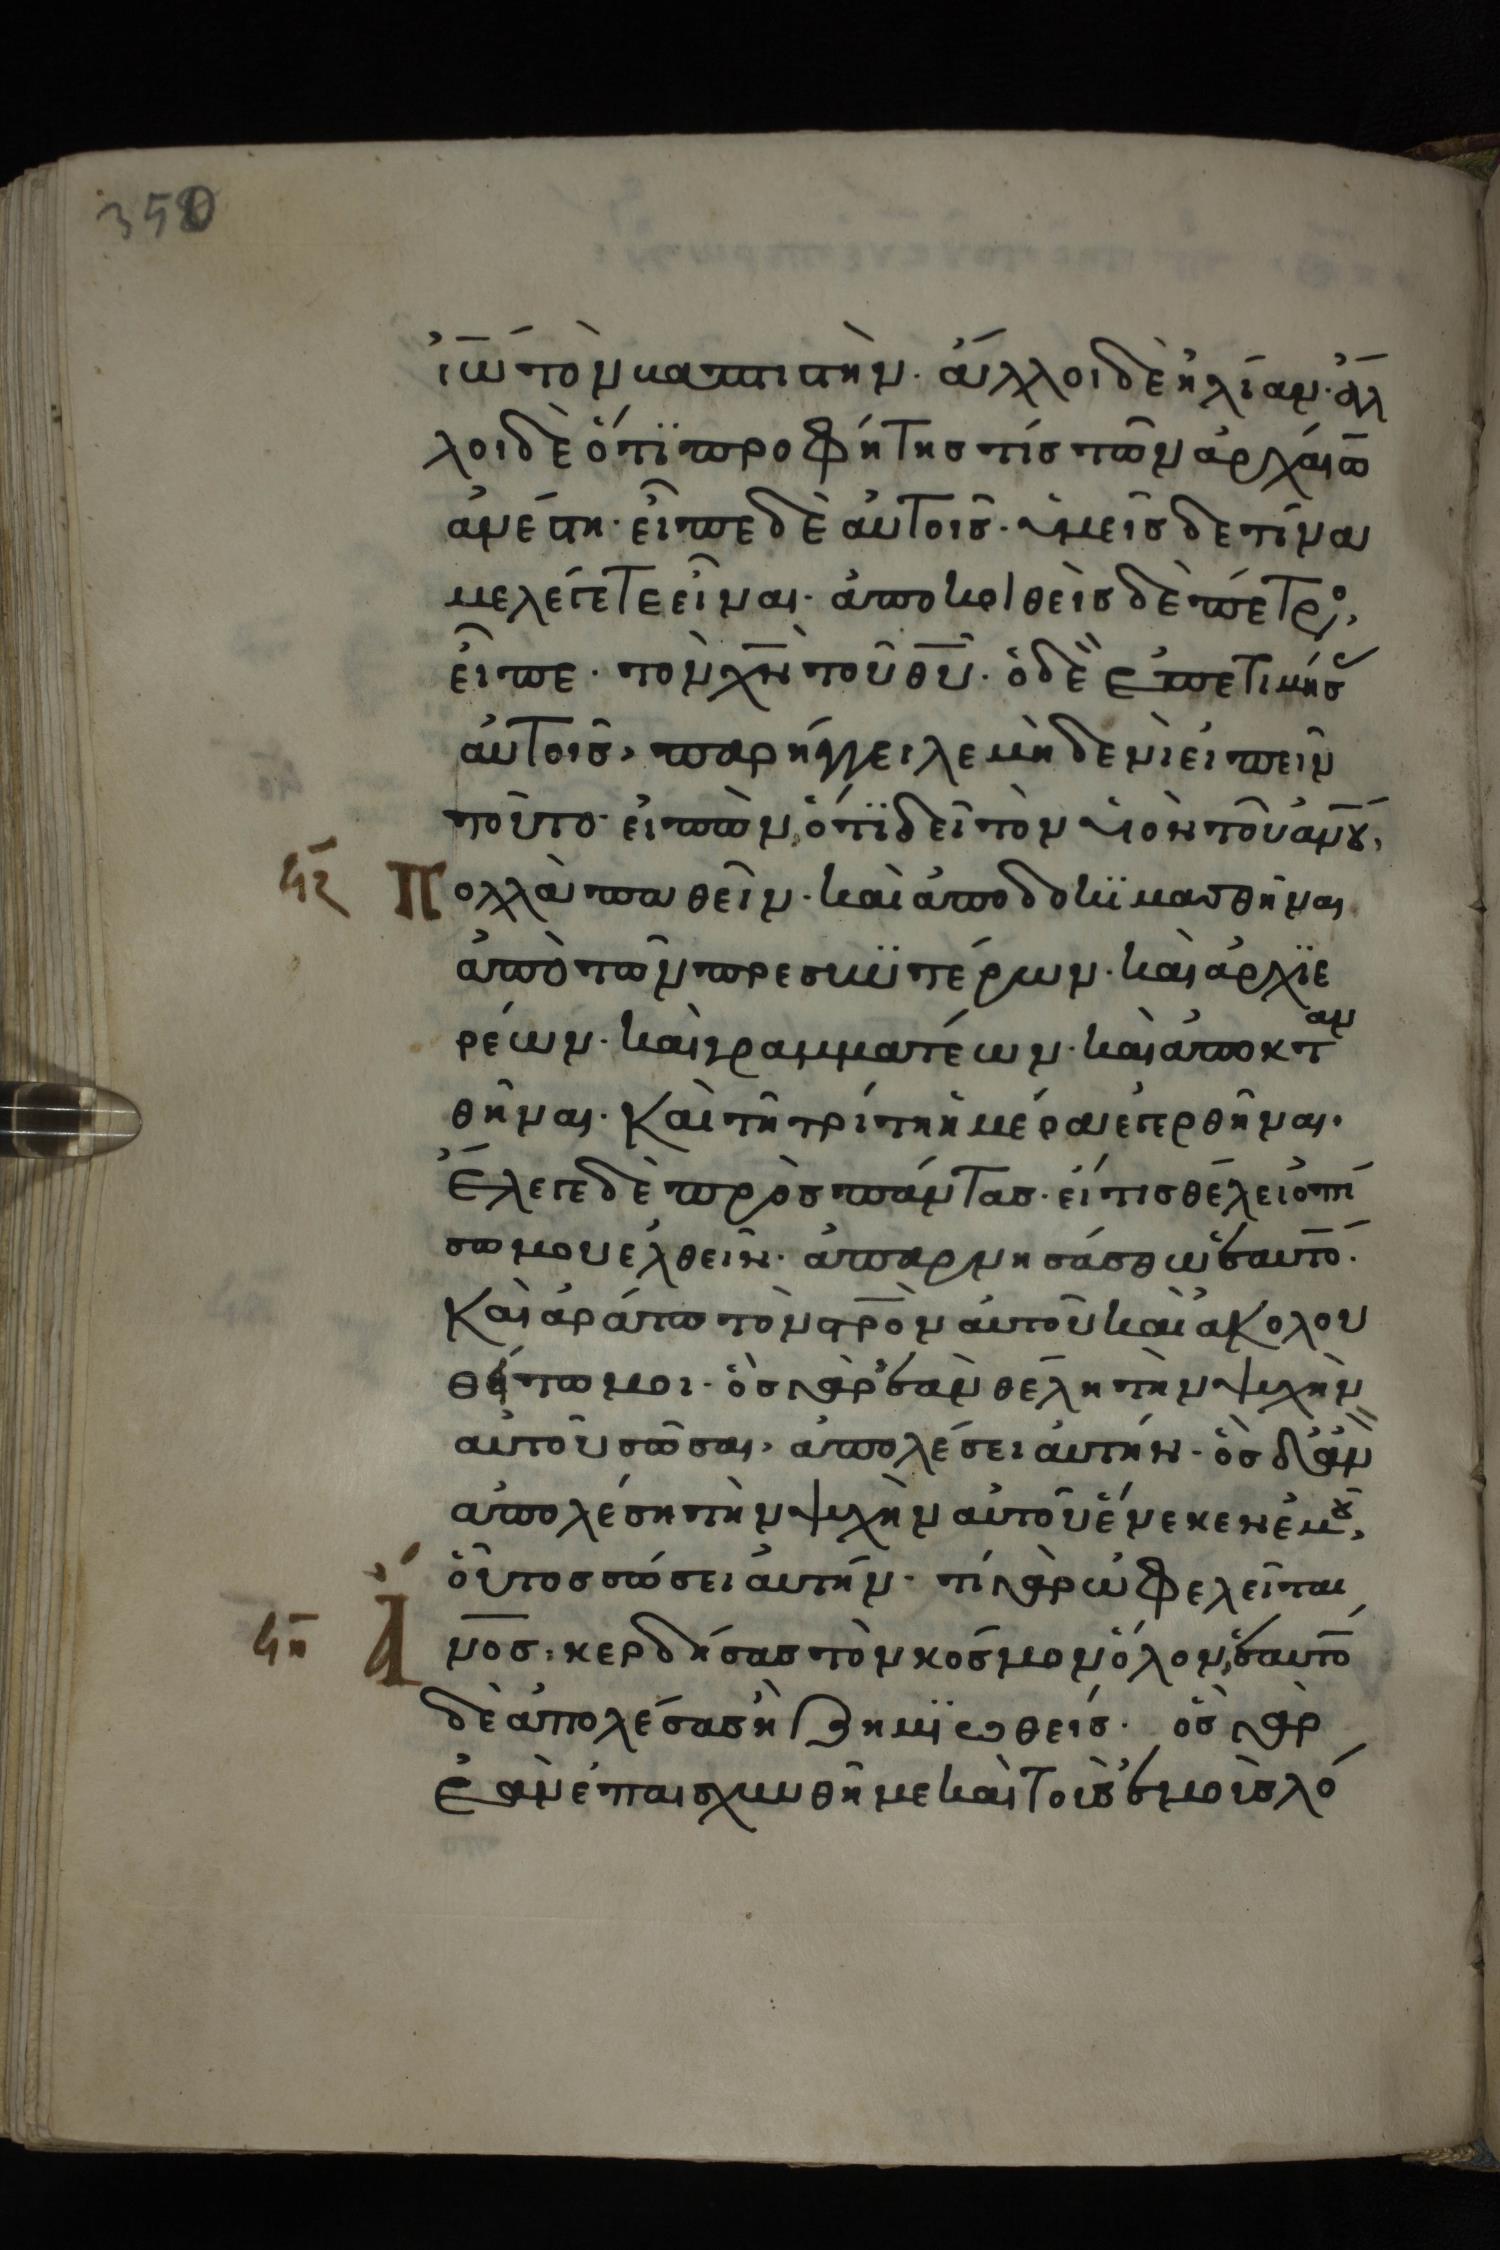 350
ἰω̅ τὸν βαπτιστὴν· ἄλλοι δὲ ἠλίαν· ἄλ
λοι δὲ ὅτϊ προφήτης τίς τῶν ἀρχαίω̅
ἀνέστη· εἶπε δὲ αὐτοῖς· ὑμεῖς δὲ τίνα
με λέγετε εἶναι· ἀποκριθεὶς δὲ πέτρος,
εἶπε· τὸν χ̅ν̅ τοῦ θ̅υ̅· ὁ δὲ ἐπετιμήσας
αὐτοῖς, παρήγγειλε μὴδενὶ εἰπεῖν
τοῦτο· εἰπὼν, ὅτϊ δεῖ τὸν υἱὸν τοῦ ἀνου,
ϟζ Πολλὰ παθεῖν· καὶ ἀποδοκϊμασθῆναι
ἀπὸ τῶν πρεσβϋτέρων· καὶ ἀρχϊε
ρέων· καὶ γραμματέων· καὶ ἀποκταν
θῆναι· Καὶ τῆ τρίτη ἡμέρα ἐγερθῆναι·
Ἔλεγε δὲ πρὸς πάντας· εἴ τις θέλει ὀπί
σω μου ἐλθεῖν· ἀπαρνησάσθω ἑαυτὸ̅·
Καὶ ἀράτω τὸν σ̅ρ̅ὸν αὐτοῦ καὶ ἀκολου
θείτω μοι· ὃς γὰρ ἐὰν θέλη τὴν ψυχὴν
αὐτοῦ σῶσαι, ἀπολέσει αὐτήν· ὃς δ' ἂν
ἀπολέση τὴν ψυχὴν αὐτοῦ ἕνεκεν ἐμοῦ,
οὗτος σώσει αὐτήν· τί γὰρ ὠφελεῖται
ϟη ἄνος, κερδήσας τὸν κόσμον ὅλον, ἑαυτὸ̅
δὲ ἀπολέσας ἢ ζημϊωθείς· ὃς γὰρ
ἐὰν ἐπαισχυνθῆ με καὶ τοὺς ἐμοὺς λό